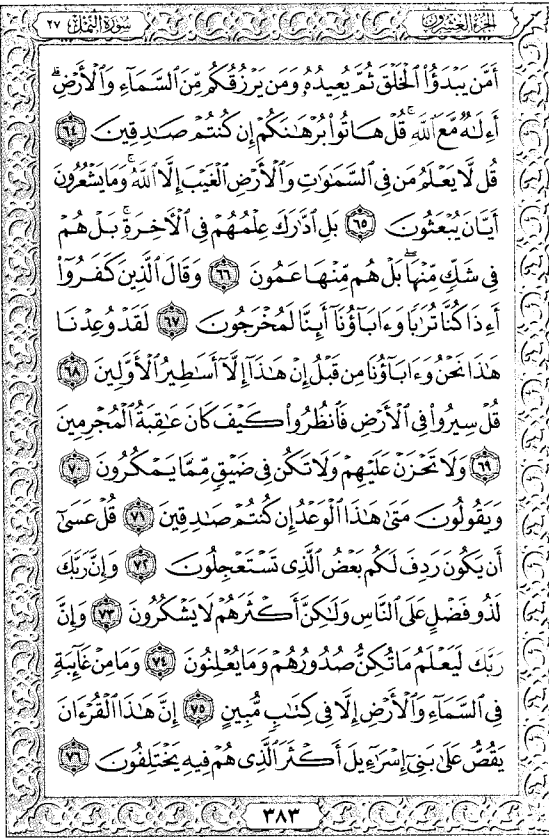 الجزء العشرون سورة النمل ٢٧
أَمَّن يَبْدَؤُا۟ الْخَلْقَ ثُمَّ يُعِيدُهُۥ وَمَن يَرْزُقُكُم مِّنَ السَّمَآءِ وَالْأَرْضِ ۗ
أَءِلَـٰهٌ مَّعَ اللَّهِ ۚ قُلْ هَاتُوا۟ بُرْهَـٰنَكُمْ إِن كُنتُمْ صَـٰدِقِينَ ٦٤
قُل لَّا يَعْلَمُ مَن فِى السَّمَـٰوَٰتِ وَالْأَرْضِ الْغَيْبَ إِلَّا اللَّهُ ۚ وَمَا يَشْعُرُونَ
أَيَّانَ يُبْعَثُونَ ٦٥ بَلِ ادَّٰرَكَ عِلْمُهُمْ فِى الْـَٔاخِرَةِ ۚ بَلْ هُمْ
فِى شَكٍّ مِّنْهَا ۖ بَلْ هُم مِّنْهَا عَمُونَ ٦٦ وَقَالَ الَّذِينَ كَفَرُوٓا۟
أَءِذَا كُنَّا تُرَٰبًا وَءَابَآؤُنَآ أَئِنَّا لَمُخْرَجُونَ ٦٧ لَقَدْ وُعِدْنَا
هَـٰذَا نَحْنُ وَءَابَآؤُنَا مِن قَبْلُ إِنْ هَـٰذَآ إِلَّآ أَسَـٰطِيرُ الْأَوَّلِينَ ٦٨
قُلْ سِيرُوا۟ فِى الْأَرْضِ فَانظُرُوا۟ كَيْفَ كَانَ عَـٰقِبَةُ الْمُجْرِمِينَ
٦٩ وَلَا تَحْزَنْ عَلَيْهِمْ وَلَا تَكُن فِى ضَيْقٍ مِّمَّا يَمْكُرُونَ ٧٠
وَيَقُولُونَ مَتَىٰ هَـٰذَا الْوَعْدُ إِن كُنتُمْ صَـٰدِقِينَ ٧١ قُلْ عَسَىٰٓ
أَن يَكُونَ رَدِفَ لَكُم بَعْضُ الَّذِى تَسْتَعْجِلُونَ ٧٢ وَإِنَّ رَبَّكَ
لَذُو فَضْلٍ عَلَى النَّاسِ وَلَـٰكِنَّ أَكْثَرَهُمْ لَا يَشْكُرُونَ ٧٣ وَإِنَّ
رَبَّكَ لَيَعْلَمُ مَا تُكِنُّ صُدُورُهُمْ وَمَا يُعْلِنُونَ ٧٤ وَمَا مِنْ غَآئِبَةٍ
فِى السَّمَآءِ وَالْأَرْضِ إِلَّا فِى كِتَـٰبٍ مُّبِينٍ ٧٥ إِنَّ هَـٰذَا الْقُرْءَانَ
يَقُصُّ عَلَىٰ بَنِىٓ إِسْرَٰٓءِيلَ أَكْثَرَ الَّذِى هُمْ فِيهِ يَخْتَلِفُونَ ٧٦
٣٨٣